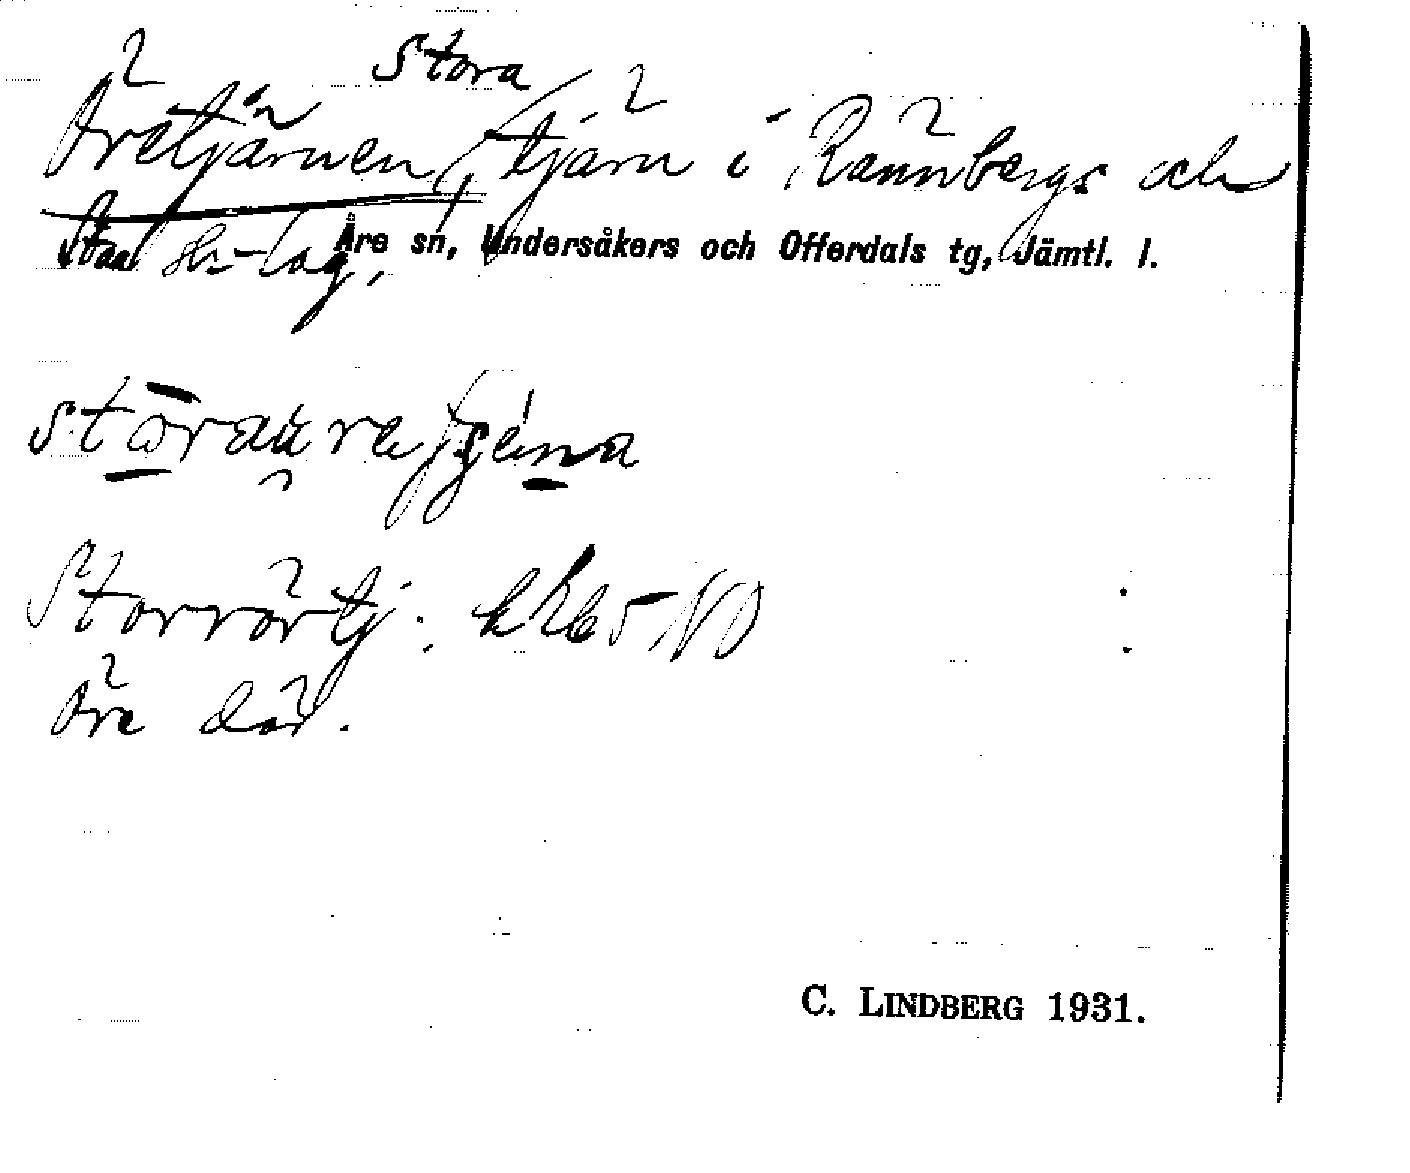 Stora
Öretjärnen, tjärn i Rännbergs och
Staa sk-lag,
Åre sn, Undersåkers och Offerdals tg, Jämtl. l.
Storrörtj. kkl 65 NO
Öre där.
C. LINDBERG 1931.